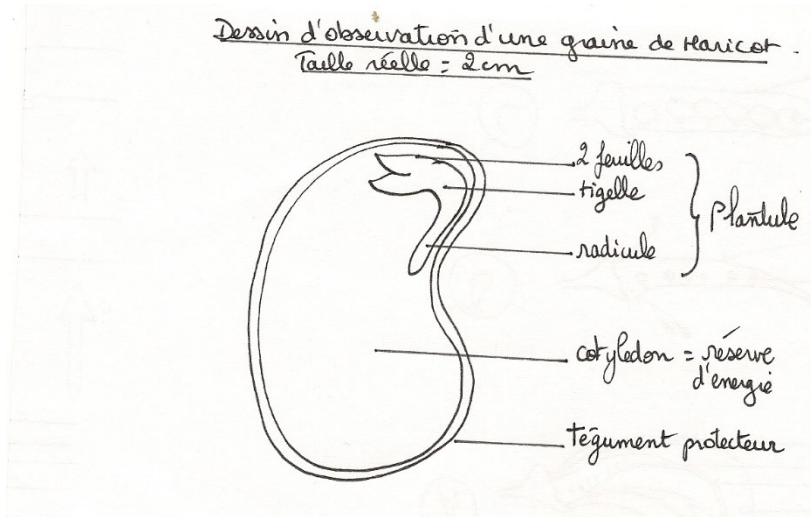 Dessin d'observation d'une graine de Haricot.
Taille réelle = 2cm
2 feuilles
tigelle
plantule
radicule
cotyledon = réserve
d'énergie
tégument protecteur